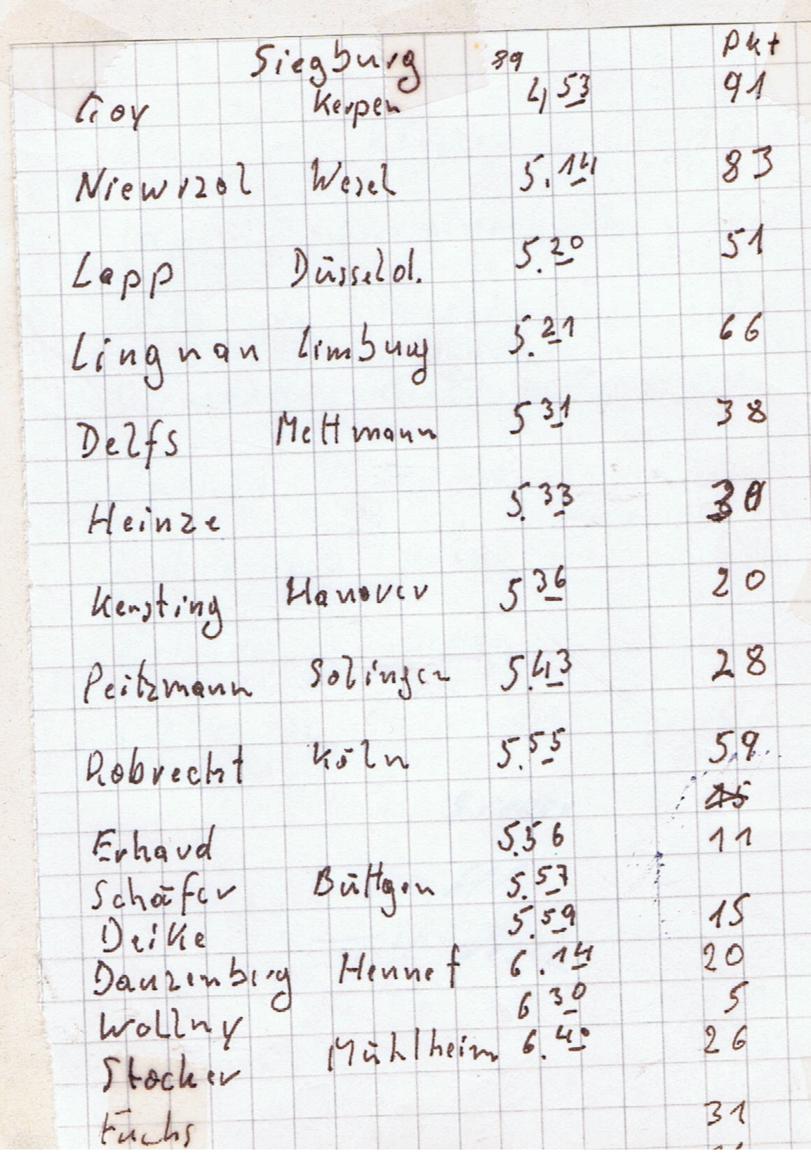 Siegburg 89 Pkt
Goy Kerpen 4,53 91
Niewrzol Wesel 5.14 83
Lapp Düsseld. 5.20 51
Lingnan Limburg 5.21 66
Delfs Mettmann 5 31 38
Heinze 5.33 30
Kersting Hanover 5 36 20
Peitzmann Solingen 5.43 28
Robrecht Köln 5.55 59
Erhard 5.56 11
Schäfer Büttgen 5.57
Deike 5.59 15
Danzenberg Hennef 6.14 20
Wollny 6 30 5
Stocker Mühlheim 6.40 26
Fuchs 31